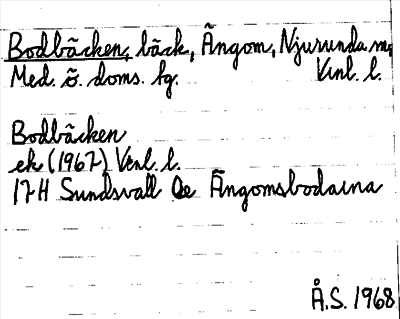 Bodbäcken, bäck, Ängom, Njurunda sn,
Med. ö. doms. hg. Vinl. l.
Bodbäcken
ek (1967) Venl. l.
17H Sundsvall Oe Ängomsbodarna
Å.S. 1968